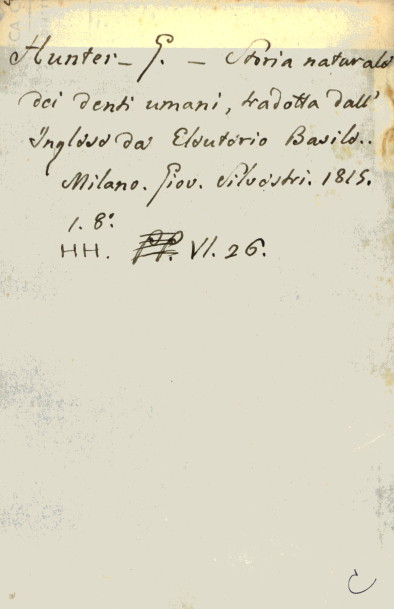 Hunter - G. - Storia naturale
dei denti umani, tradotta dall'
Inglese da Eleuterio Basile..
Milano. Giov. Silvestri. 1815.
1. 8.°
HH. VI. 26.